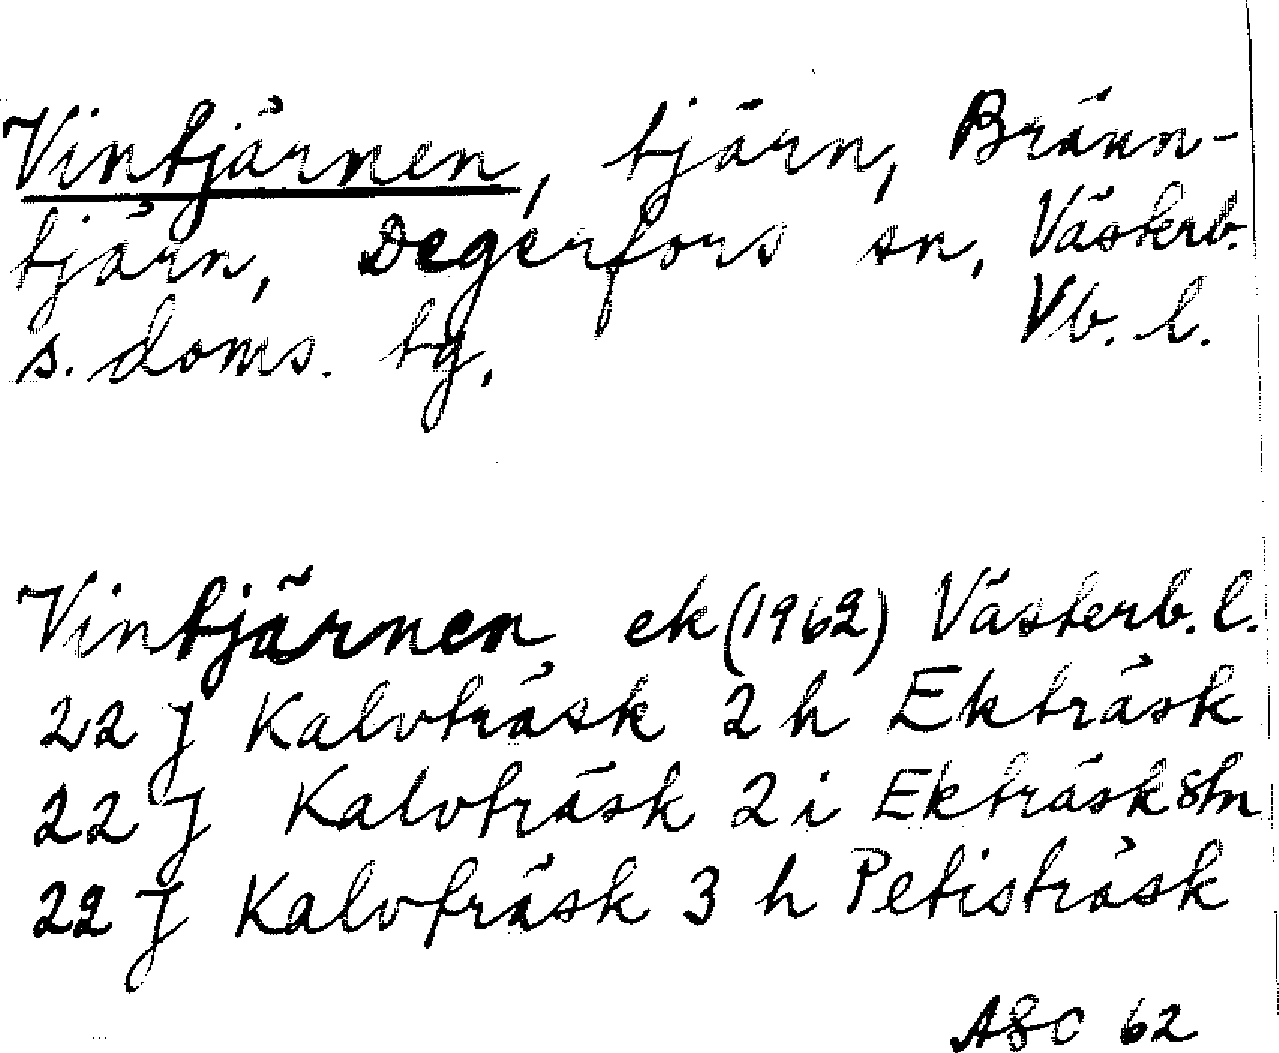 Vintjärnen, tjärn, Bränn-
tjärn, Degerfors sn, Västerb.
s. doms. tg. Vb. l.
Vintjärnen ek (1962) Västerb. l.
22 J Kalvträsk 2 h Ekträsk
22 J Kalvträsk 2 i Ekträsk stn
22 J Kalvträsk 3 h Petisträsk
ASC 62